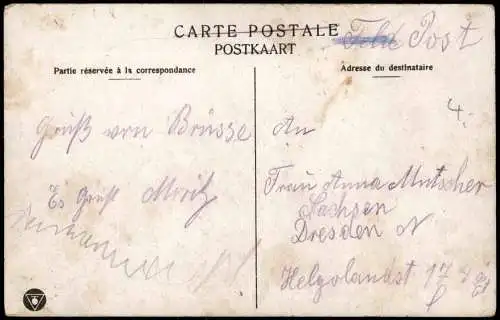 CARTE POSTALE
POSTKAART
Feld Post
Partie réservée à la correspondance
Adresse du destinataire
4.
Gruß von Brüsse
Es Grüst Moritz
An
Frau Anna Mutscher
Sachsen
Dresden N
Helgolandst 17